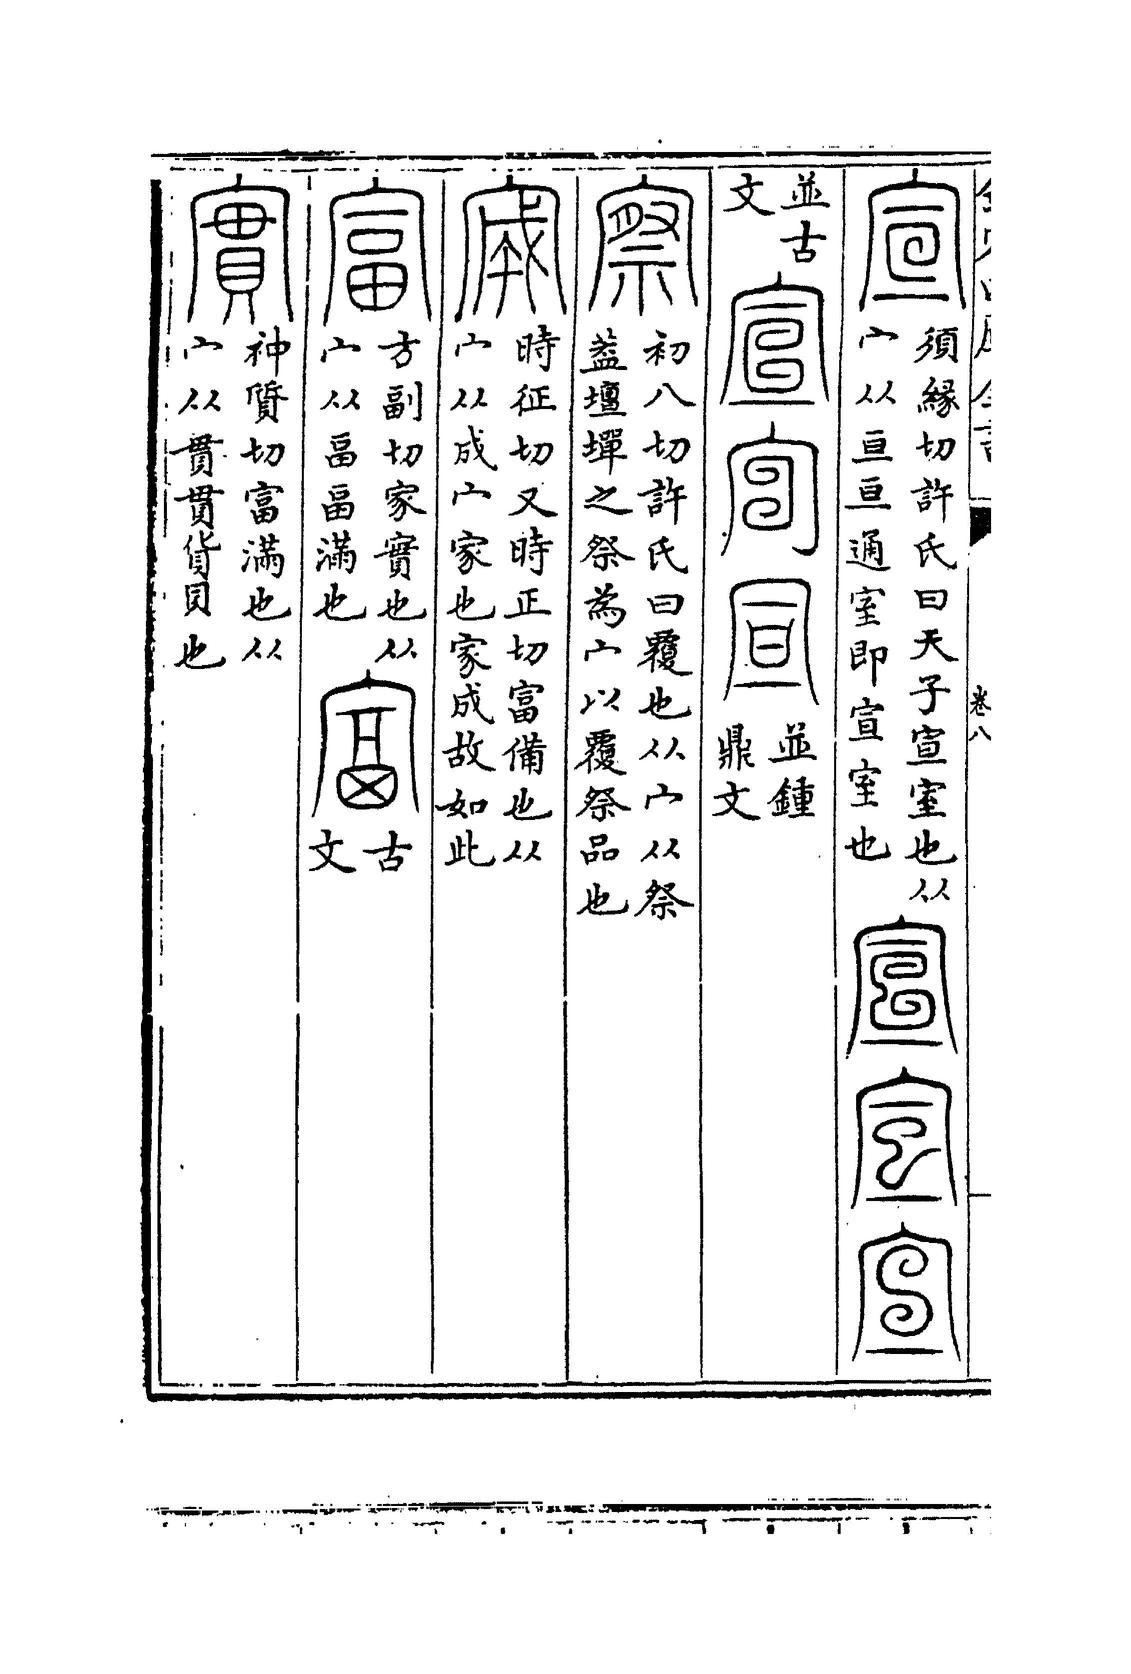 宣須緣切許氏曰天子宣室也从
宀从亘亘通室即宣室也
並古
文
並鐘
鼎文
察初八切許氏曰覆也从宀从祭
葢壇墠之祭為宀以覆祭品也
宬時征切又時正切富備也从
宀从成宀家也家成故如此
富方副切家實也从
宀从畐畐滿也
古
文
實神質切富滿也从
宀从貫貫貨貝也
卷八